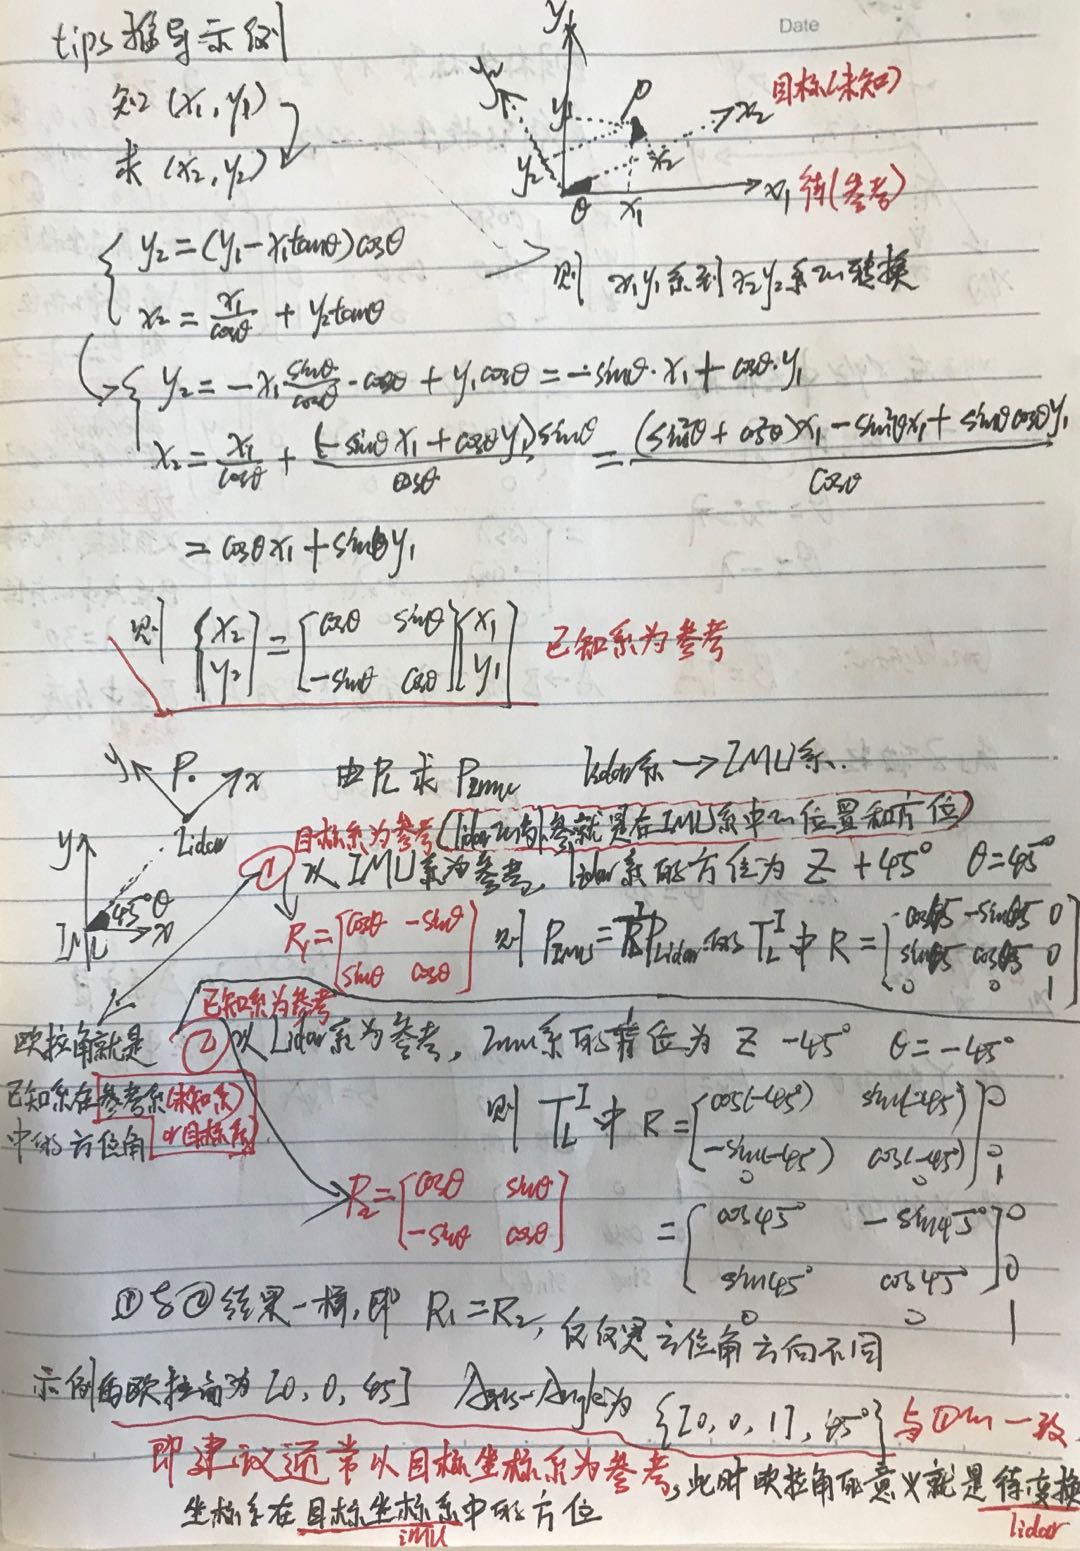 Date
tips推导示例
知 (x₁, y₁)
求 (x₂, y₂)
y₁
y₂
y₁
P
x₂ 目标(未知)
y₂
x₂
θ
x₁
x₁ 待(参考)
y₂ = (y₁ - x₁tanθ)cosθ
x₂ = x₁/cosθ + y₂tanθ
则 x₁y₁系到x₂y₂系的转换
y₂ = -x₁ sinθ/cosθ · cosθ + y₁cosθ = -sinθ·x₁ + cosθ·y₁
x₂ = x₁/cosθ + (-sinθx₁ + cosθy₁)sinθ/cosθ = ((sin²θ + cos²θ)x₁ - sin²θx₁ + sinθcosθy₁)/cosθ
= cosθx₁ + sinθy₁
则 [x₂ y₂] = [cosθ sinθ -sinθ cosθ][x₁ y₁] 已知系为参考
y P. x
Lidar
由PL求PImu lidar系→IMU系.
目标系为参考(lidar的外参就是在IMU系中的位置和方位)
y
45°θ
IMU x
① 以IMU系为参考, lidar系的方位为 Z +45° θ=45°
R₁ = [cosθ -sinθ sinθ cosθ]
则 PImu = PLidar T_L^I中 R = [cos45 -sin45 0 sin45 cos45 0 0 0 1]
已知系为参考
欧拉角就是
② 以Lidar系为参考, Imu系的方位为 Z -45° θ=-45°
已知系在参考系(未知系)
中的方位角 or目标系)
则 T_L^I中 R = [cos(-45°) sin(-45°) 0 -sin(-45°) cos(-45°) 0 0 0 1]
R₂ = [cosθ sinθ -sinθ cosθ]
= [cos45° -sin45° 0 sin45° cos45° 0 0 0 1]
①与②结果一样, 即 R₁=R₂, 仅仅是方位角方向不同
示例的欧拉角为 [0, 0, 45] Axis-Angle为 {[0, 0, 1], 45°} 与①的一致
即建议通常以目标坐标系为参考, 此时欧拉角的意义就是待变换
坐标系在目标坐标系中的方位
iMU
lidar